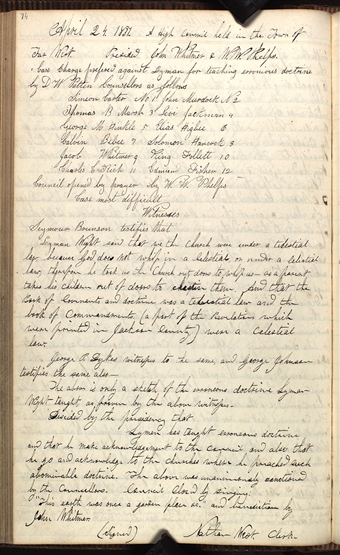 74
April 24 1837 A High Council held in the Town of
Far West Presided John Whitmer & W W Phelps
Case Charge prefered against Lyman for teaching erroneous doctrine
by D. W. Patten Counsellors as follows
Simeon Carter No 1 John Murdock No 2
Thomas B Marsh 3 Levi Jackman 4
George M Hinkle 5 Elias Higbee 6
Calvin Bebee 7 Solomon Hancock 8
Jacob Whitmer 9 King Follett 10
Charles C Rich 11 Lyman 12
Council opened by prayer by W. W. Phelps
Case most difficult
Witnesses
Seymour Brunson testifies that
Lyman Wight said that
law because God does not
law, therefore he took us the Church out doors to whip us - as a parent
takes his children out of doors to chasten them And that the
Book of Covenants and doctrine was a telestial law and the
book of Commandments (a part of the Revelations which
were printed in Jackson County) were a Celestial
law
George P. Dykes witnesses to the same, and George Johnson
testifies the same also—
The above is only a sketch of the erroneous doctrine Lyman
Wight taught as proven by the above witnesses.
Decided by the presidency that
Lyman has taught erroneous doctrine
and that he make acknowledgement to the Council, and also that
he go and acknowledge to the churches where he preached such
abominable doctrine. The above was unanimously sanctioned
by the Councellors. Council closed by singing
"This earth was once a garden place" &c and benediction by
John Whitmer
(Signed) Nathan West, Clerk